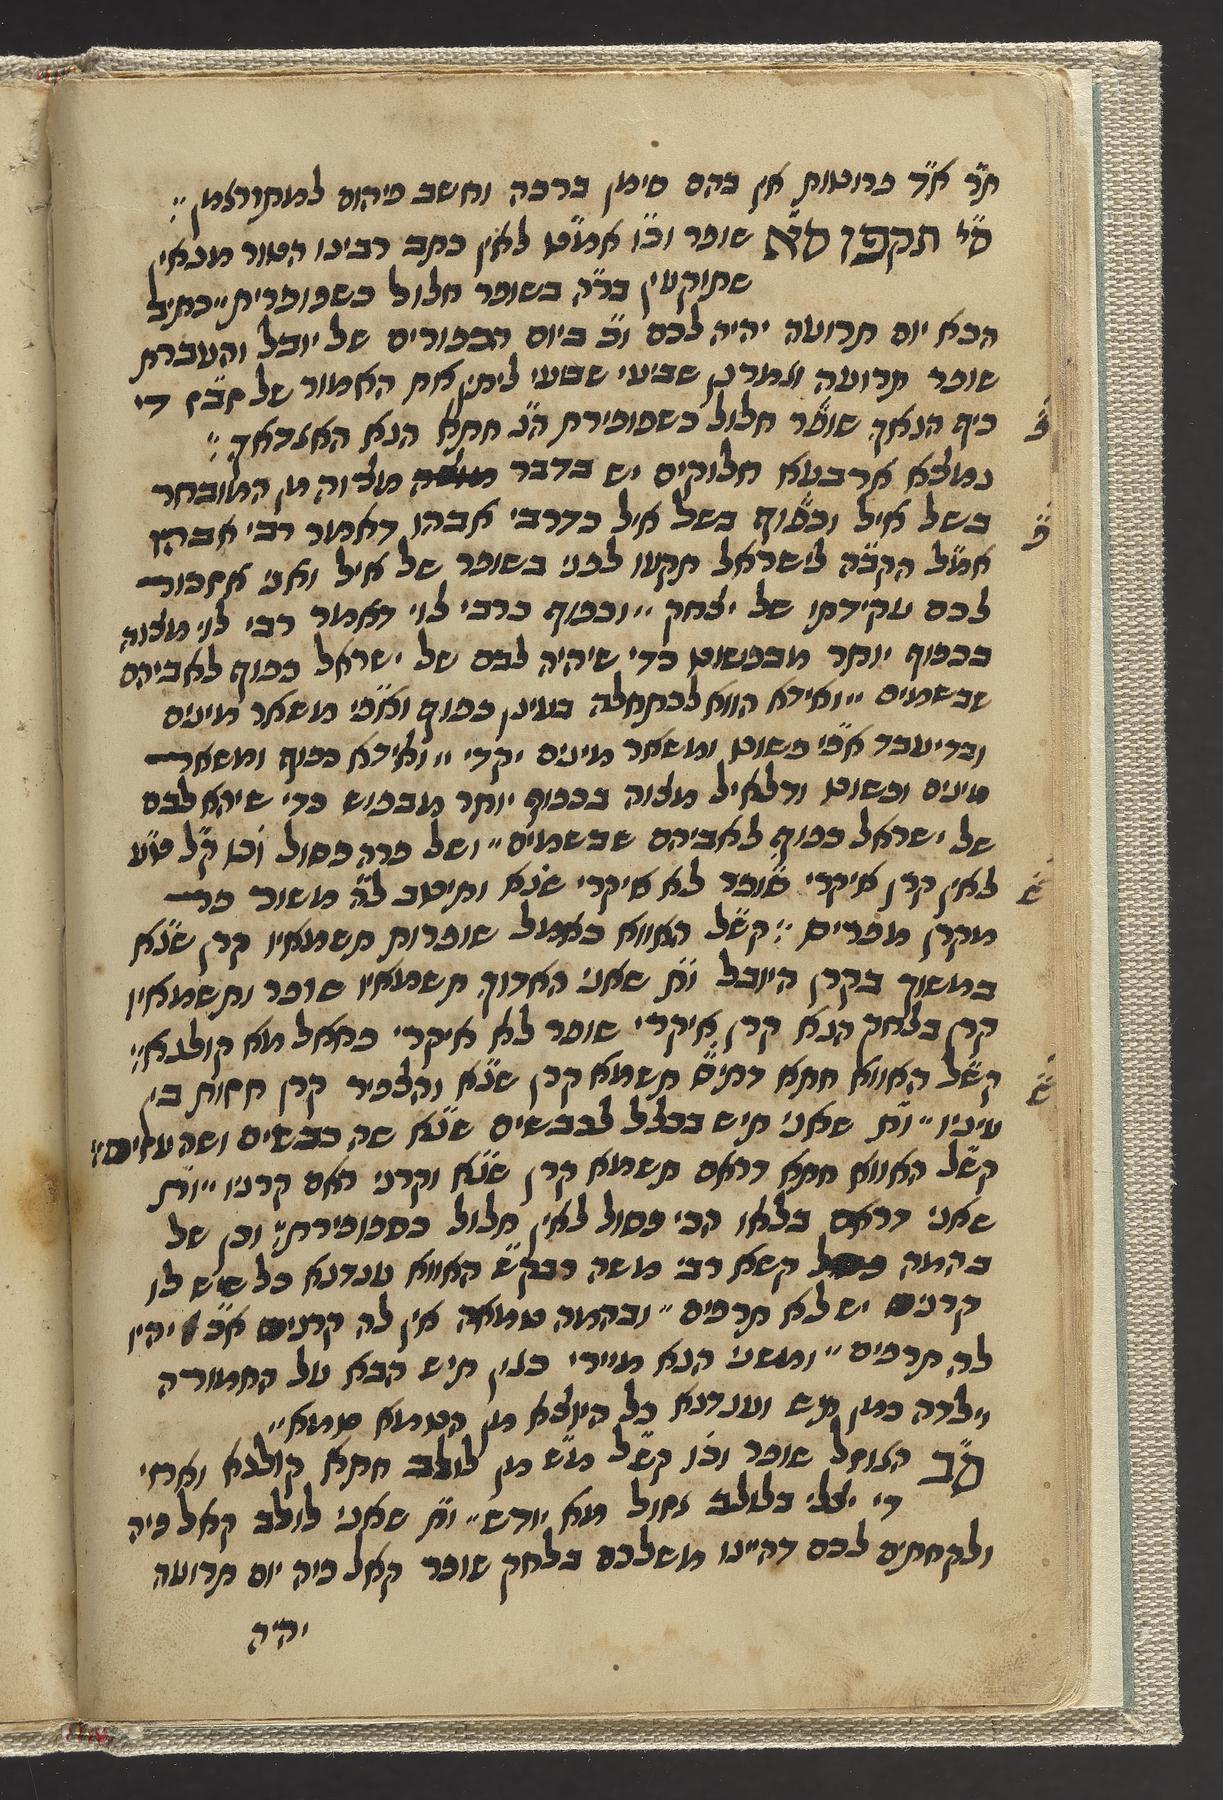 ת״ר א״ד פרוטות אין בהם סימן ברכה וחשב פיהום למתורגמן :
סי׳ תקפו ס״א שופר וכ״ו אמ״ט לאין כתב רבינו הטור מנאין
שתוקעין בר״ה בשופר חלול כשפופרית״ כתיב
הכא יום תרועה יהיה לכם וכ׳ ביום הכפורים של יובל והעברת
שופר תרועה וגמרנן שביעי שביעי ליתן את האמור של
כיף הנאך שופר חלול כשפופירת ה״נ חתא הנא האגדאך :
נמצא ארבעא חלוקים יש בדבר מצוה מן המובחר
בשל איל וכפוף בשל איל כדרבי אבהו דאמר רבי אבהו
אמ״ל הקב״ה לישראל תקעו לפני בשופר של איל ואני אזכור
לכם עקידתו של יצחק ״ וכפוף כרבי לוי דאמר רבי לוי מצוה
בכפוף יותר מבפשוט כדי שיהיה לבם של ישראל כפוף לאביהם
שבשמים ״ ואידא הווא לכתחלה בעינן כפוף וא״פי משאר מינים
ובדיעבד א״פי פשוט ומשאר מינים יקדי ״ ואידא כפוף ומשאר
מינים ופשוט ודלאיל מצוה בכפוף יותר מבפוש כדי שיהא לבם
של ישראל כפוף לאביהם שבשמים ״ ושל פרה פסול וכו ק״ל ט״ע
לאין קרן איקרי שופר לא איקרי ש׳נא ותיטב לה׳ משור פר
מקרן מפרים : קש״ל האווא כאמל שופרות תשמאיו קרן ש״נא
במשוך בקרן היובל ות׳ שאני האדוך תשמאיו שופר ותשמאיו
קרן בלחק הנא קרן איקרי שופר לא איקרי כאאל מא קולנא :
קש״ל האווא חתא דתיש תשמא קרן ש״נא והצפיר קרן חזות בין
עיניו ״ ות׳ שאני תיש בכלל לכבשים ש״נא שה כבשים ושה עזים :
קש״ל האווא חתא דראם תשמא קרן ש״נא וקרני ראם קרניו ״ ות׳
שאני דראם בלאו הכי פסול לאין חלול כספופירת : וכן של
בהמה קשא רבי משה הבק״ש האווא ענדנא כל שיש לו
קרנים יש לא תרפים ״ ובהמה טמאה אין לה קרנים א״כ יהיו
לה תרפים ״ ומשני הנא מיירי כגין תיש הבא על החמורה
וילדה כמן תיש וענדנא כל היוצא מן הטמא טמא ״
ס״ב הגוזל שופר וכו׳ קש״ל מ״ש מן לולב חתא קולנא ואזי
די יצלי בלולב גזול מא יודש ״ ות׳ שאני לולב קאל פיה
ולקחתם לכם דהיינו משלכם בלחק שופר קאל פיה יום תרועה
יהיה